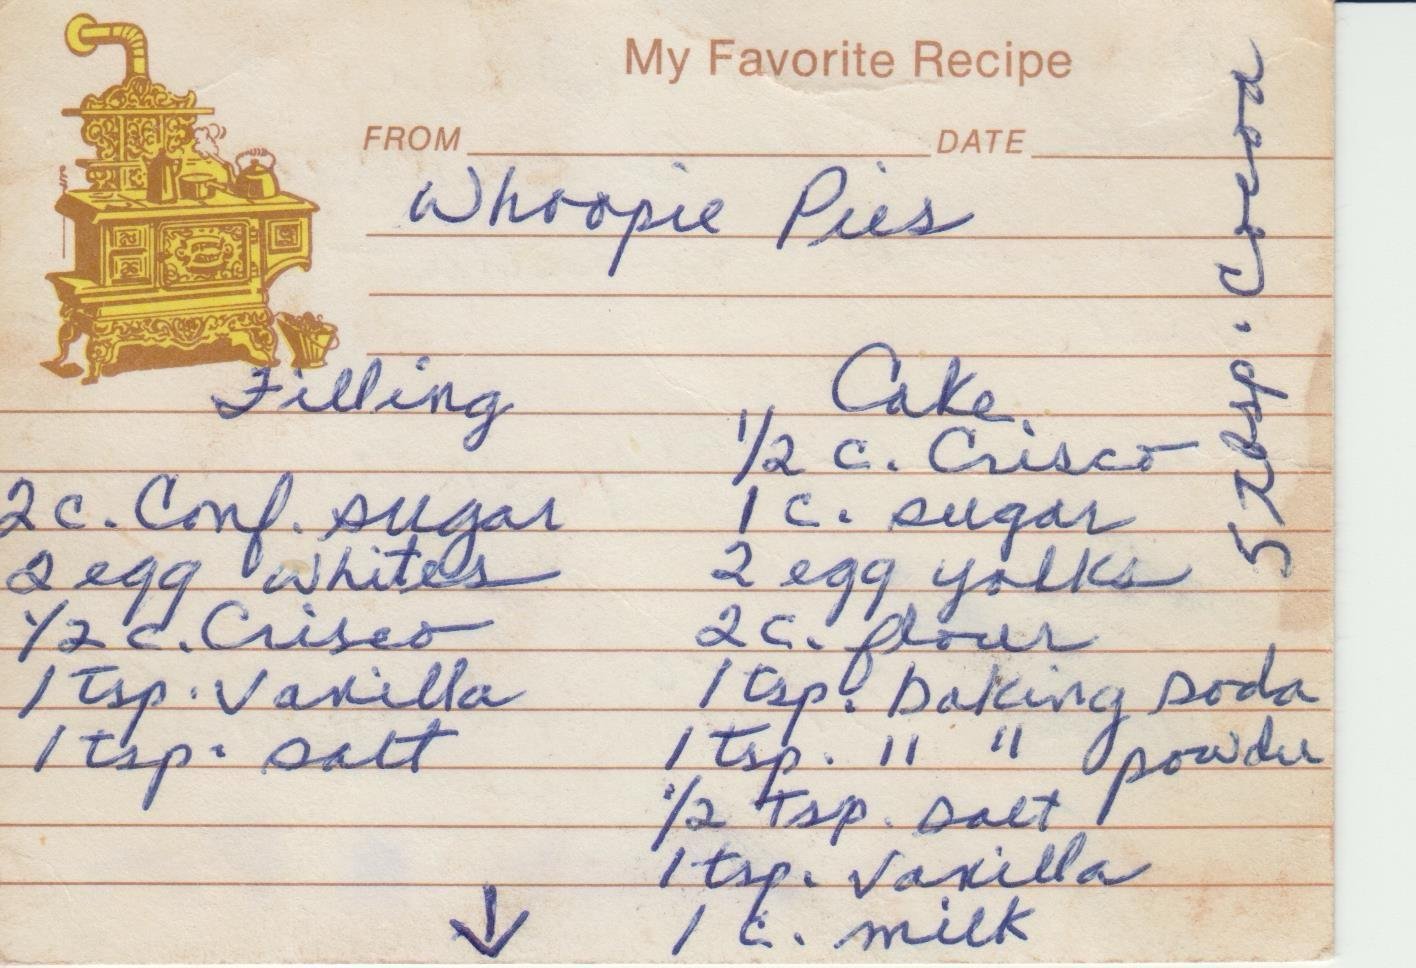 My Favorite Recipe
FROM DATE
Whoopie Pies
Filling
2 c. Conf. sugar
2 egg whites
1/2 c. Crisco
1 tsp. Vanilla
1 tsp. salt
Cake
1/2 c. Crisco
1 c. sugar
2 egg yolks
2 c. flour
1 tsp. baking soda
1 tsp. " " powder
1/2 tsp. salt
1 tsp. vanilla
1 c. milk
5 Tbsp. Cocoa